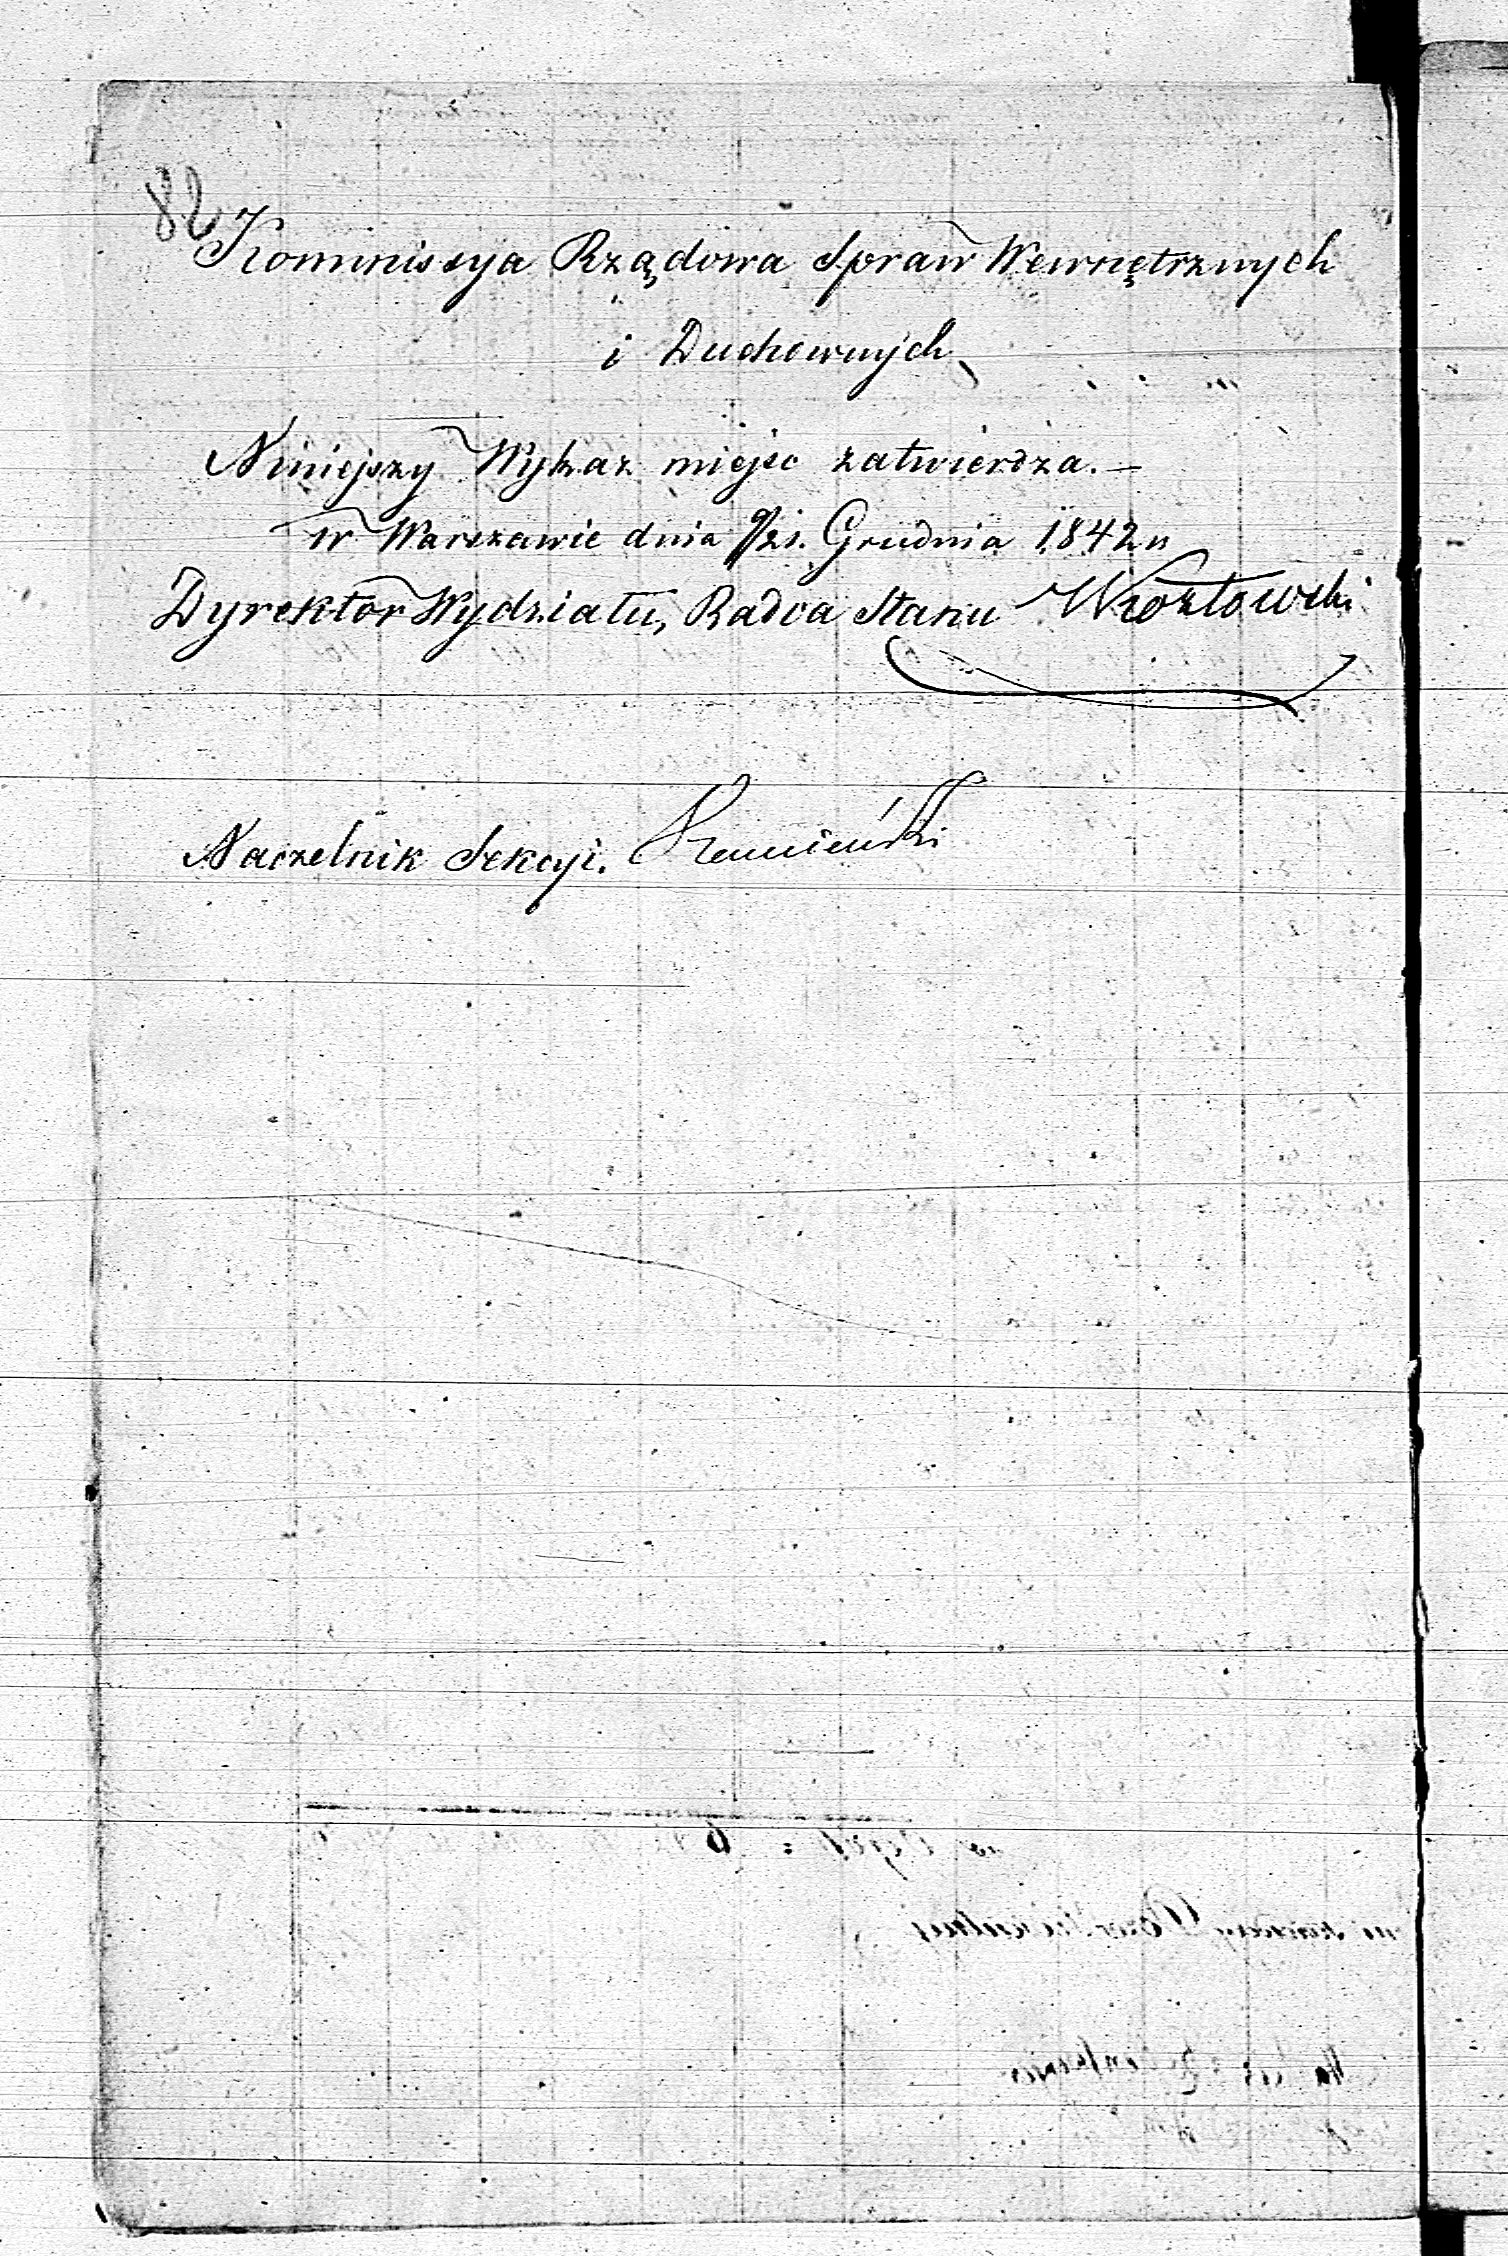 82
Kommissya Rządowa Spraw Wewnętrznych
i Duchownych
Niniejszy Wykaz miejsc zatwierdza. —
w Warszawie dnia 9/21. Grudnia 1842 r.
Dyrektor Wydziału, Radca Stanu
Naczelnik Sekcyi.